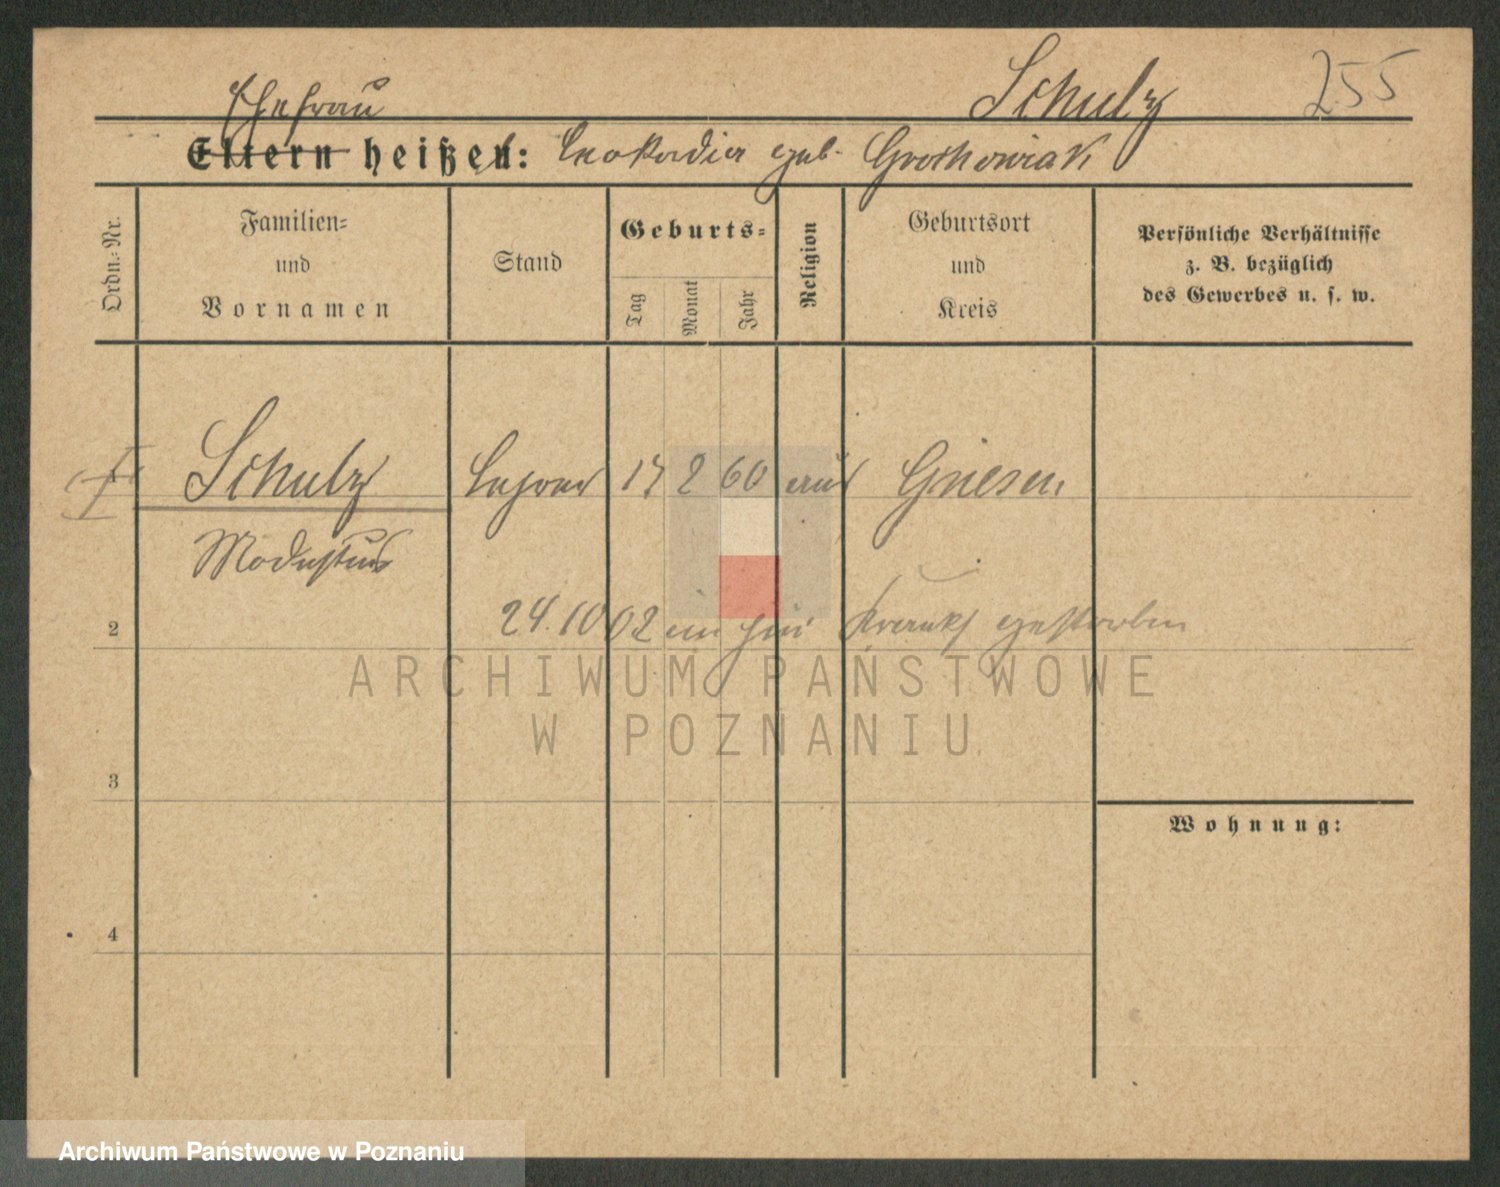 Schulz 255
Ehefrau
Eltern heißen: Leokadia geb. Grochowiak
Ordn.-Nr.
Familien-
und
Vornamen
Stand
Geburts-
Tag
Monat
Jahr
Religion
Geburtsort
und
Kreis
Persönliche Verhältnisse
z. B. bezüglich
des Gewerbes u. s. w.
Schulz Lehrer 17 2 60 aus Gnesen
Modestus
2 24.10 02 gestorben
3
4
Wohnung:
ARCHIWUM PAŃSTWOWE
W POZNANIU
Archiwum Państwowe w Poznaniu